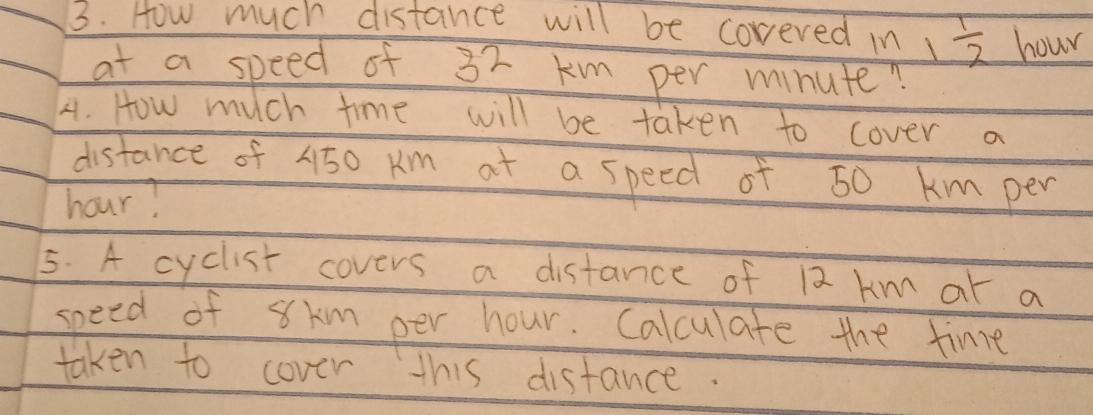 3. How much distance will be covered in 1 1/2 hour
at a speed of 32 km per minute?
4. How much time will be taken to cover a
distance of 450 km at a speed of 50 km per
hour?
5. A cyclist covers a distance of 12 km at a
speed of 8 km per hour. Calculate the time
taken to cover this distance.